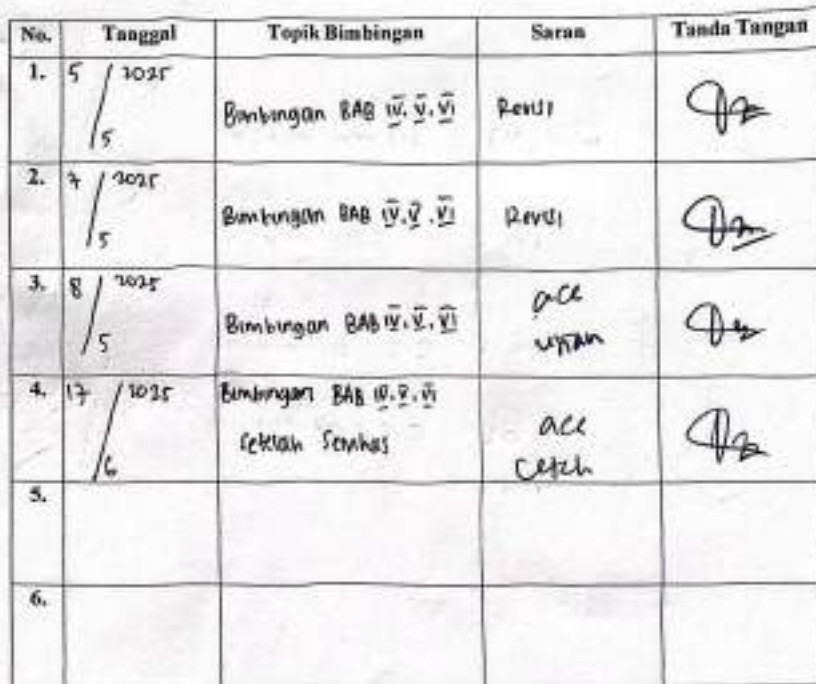 No. Tanggal Topik Bimbingan Saran Tanda Tangan
1. 5/5 2025 Bimbingan BAB IV, V, VI Revisi
2. 7/5 2025 Bimbingan BAB IV, V, VI Revisi
3. 8/5 2025 Bimbingan BAB IV, V, VI acc
ujian
4. 17/6 2025 Bimbingan BAB IV, V, VI
setelah Semhas acc
cetak
5.
6.